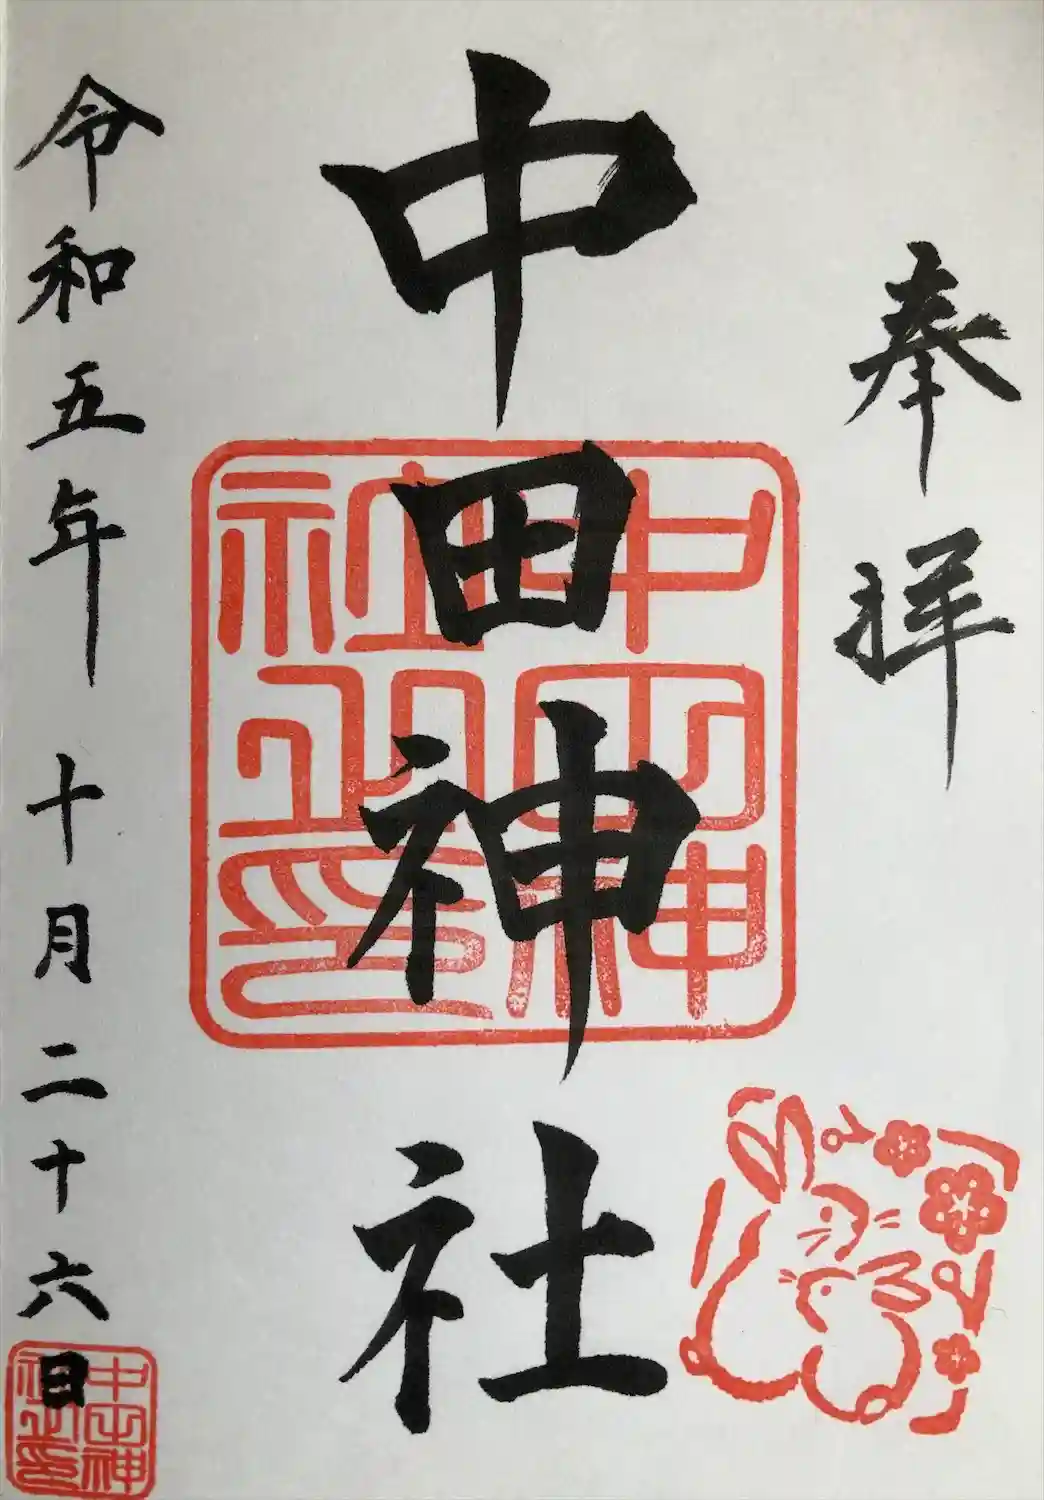 奉拝
中田神社
中田神社之印
令和五年十月二十六日
中田神社之印